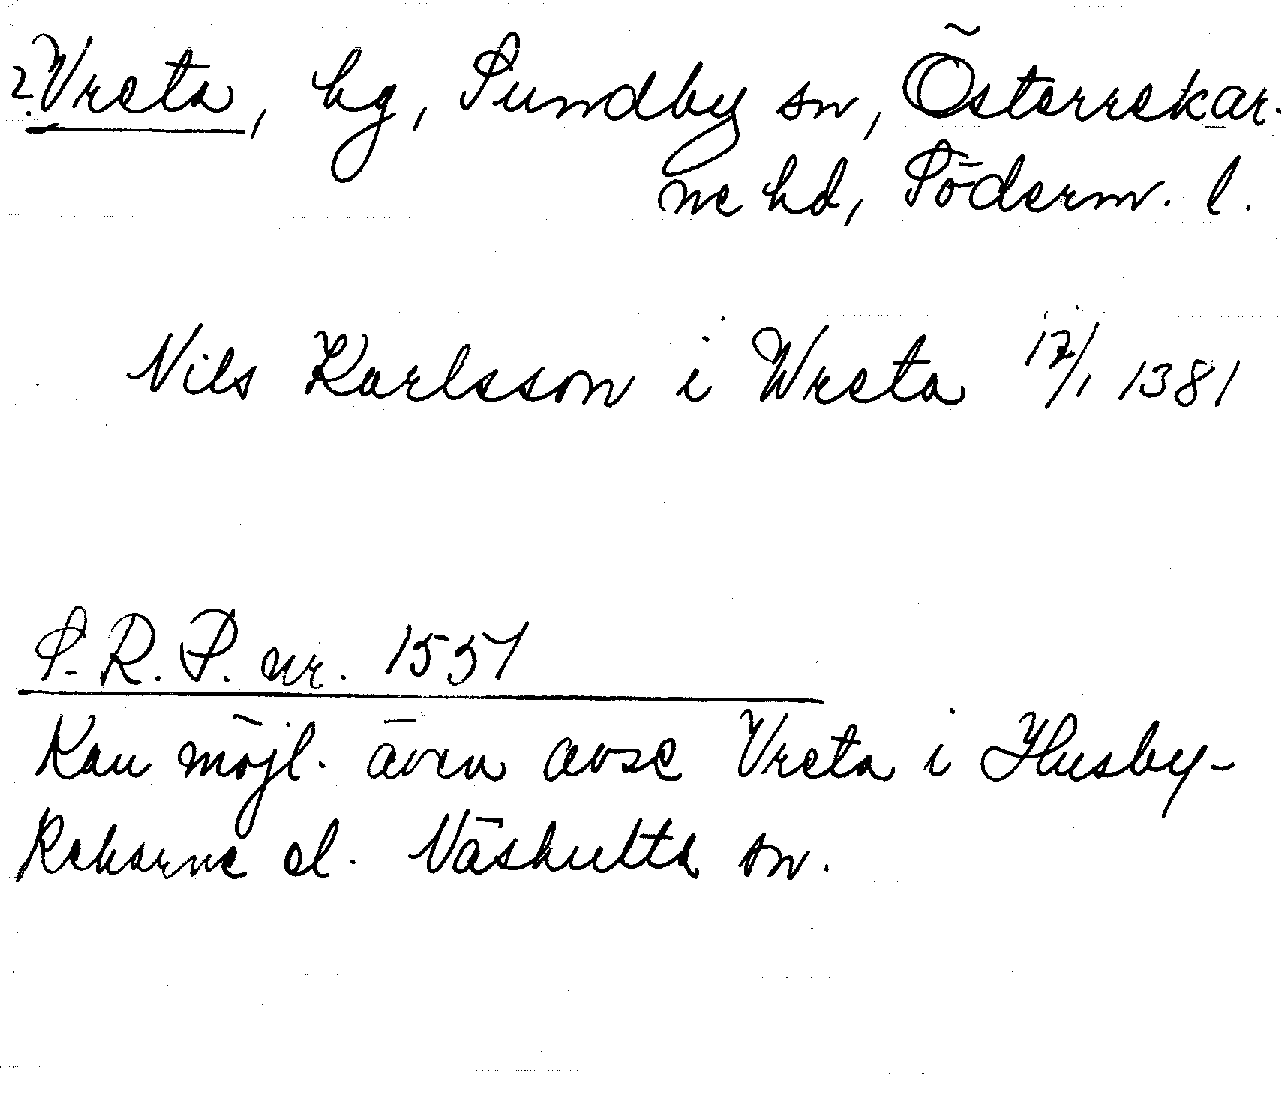 ?Vreta, hg, Sundby sn, Österrekar-
ne hd, Söderm. l.
Nils Karlsson i Wreta 17/1 1381
S.R.P. nr. 1551
Kan möjl. även avse Vreta i Husby-
Rekarne el. Näshulta sn.